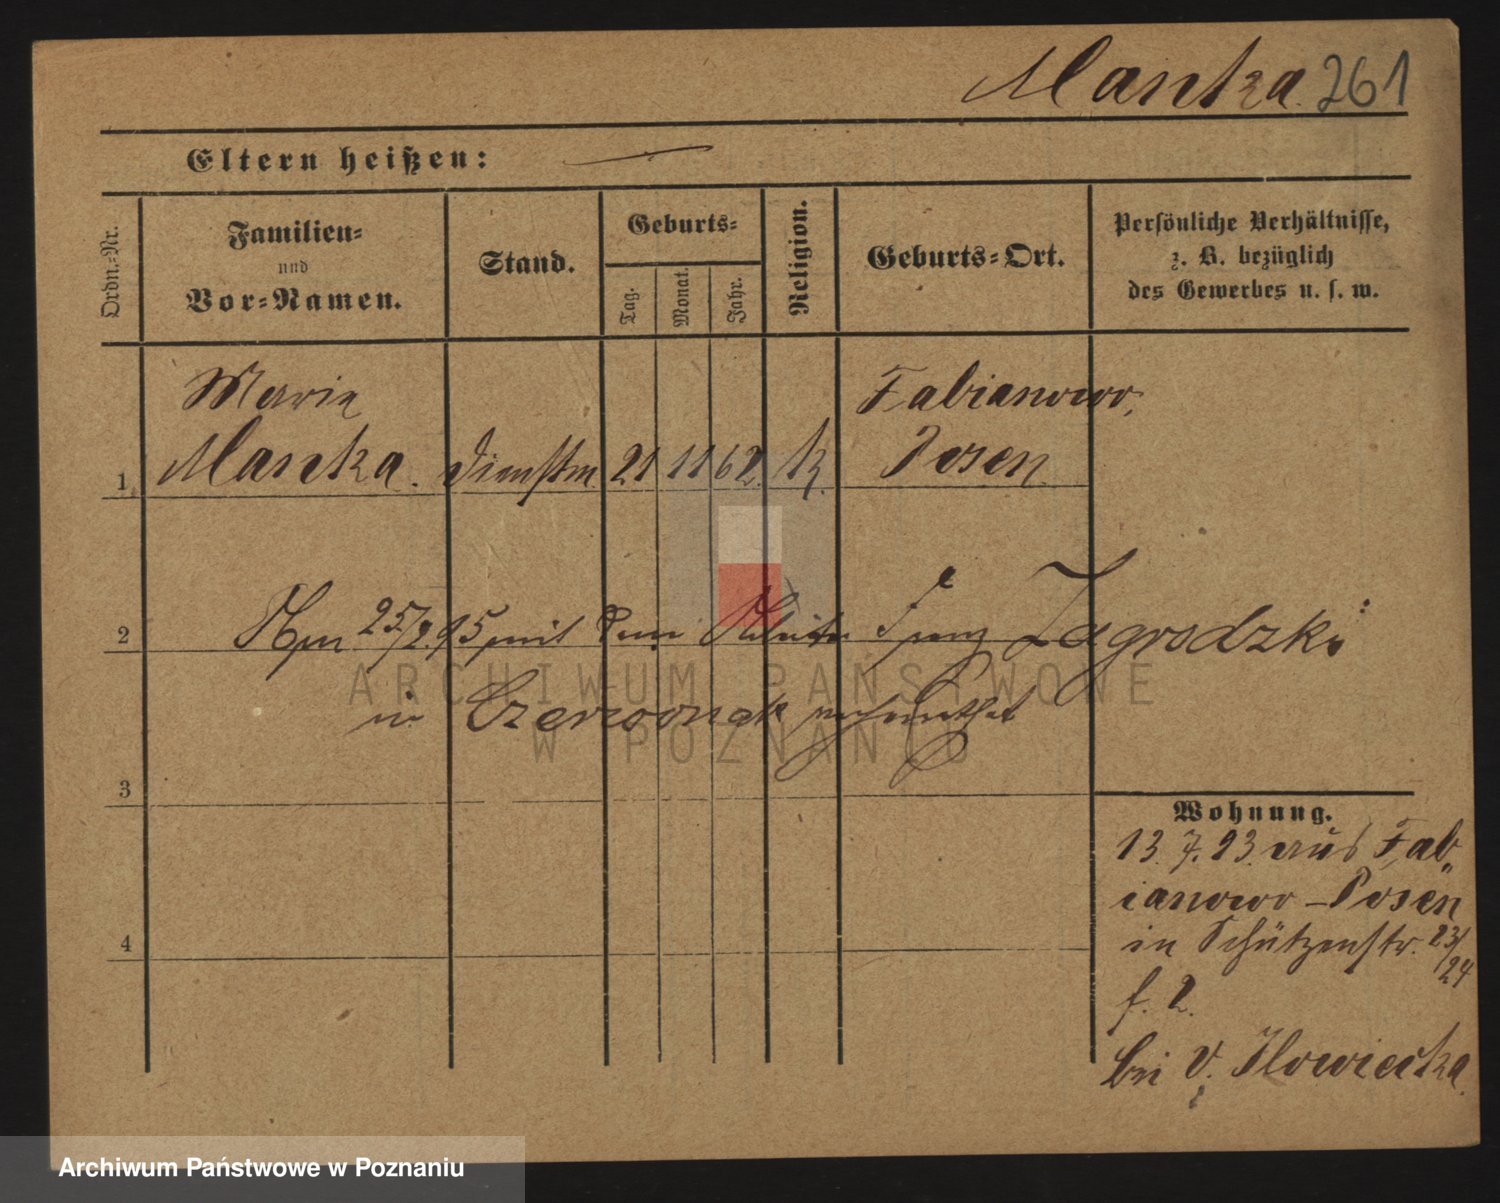 Manka. 261
Eltern heißen: —
Ordn.-Nr.
Familien-
und
Vor-Namen.
Stand.
Geburts-
Tag.
Monat.
Jahr.
Religion.
Geburts-Ort.
Persönliche Verhältnisse,
z. B. bezüglich
des Gewerbes u. s. w.
Marie Fabianowo,
1 Manka. Dienstm. 21 11 62. K. Posen
2 25/2.95 mit dem Arbeiter Franz Zagrodzki
in Czerwonak verheirathet
3
Wohnung.
13.7.93. aus Fab
ianowo – Posen
in Schützenstr. 23/
24
4
f. 2.
bei v. Ilowiecka.
ARCHIWUM PAŃSTWOWE
W POZNANIU
Archiwum Państwowe w Poznaniu